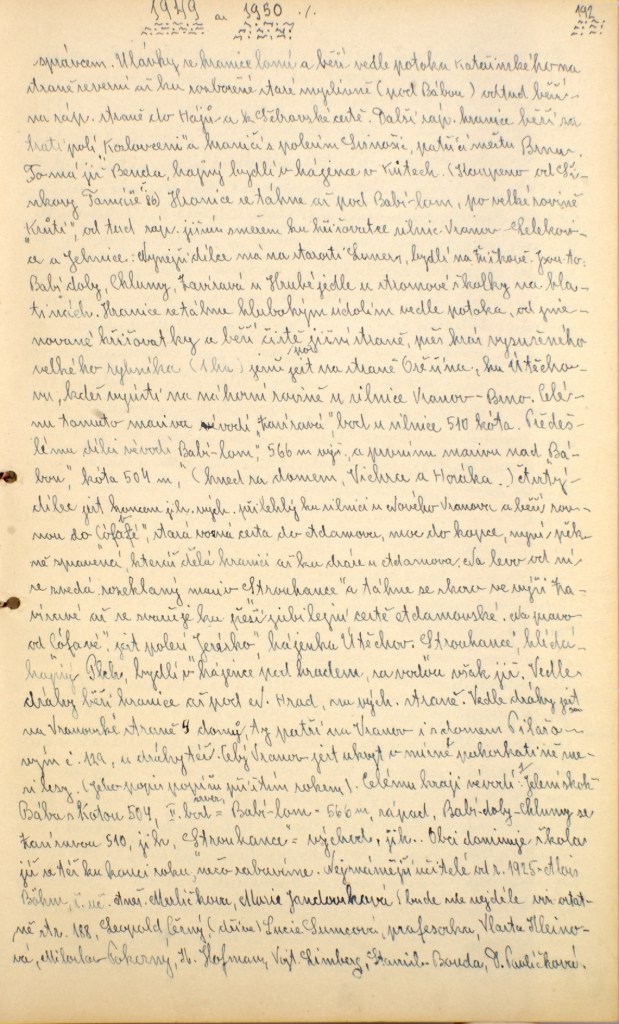 1949 až 1950 ./.
192
správcem. U lávky se hranice lomí a běží vedle potoka Kateřinského na
straně severní až ku rozbořené staré myslivně (pod Bábou) odtud běží
na záp. straně do Hájů a ke Ščhravské cestě. Další záp. hranice běží za
tratí polí "Kozlovcení" a hraničí s polesím Svinošic, patřící městu Brnu.
To má již Benda, hajný bydlí v hájence v Kůtech. (Koupeno od Ši-
nkovy Tomáše 86) Hranice se táhne až pod Babí-lom, po velké rovině
"Krúti", od tud záp. jižním směrem ku křižovatce silnic Vranov - Lelekov-
ce a Jehnice. Nynější dílce má na starosti Luner, bydlí na Ruškově. Jsou to:
Babí doly, Chlumy, Zavíravá u Hrubé jedle u stromové školky na bla-
tinčích. Hranice se táhne hlubokým údolím vedle potoka, od jme-
nované křižovatky a běží čistě jižní straně, přes hráz vysušeného
velkého rybníka (1 ha) jenž jest na straně Ořešína, ku Útěcho-
vu, kdež vyúsťí na náhorní rovině u silnice Vranov - Brno. Celé-
mu tomuto masivu vévodí "Zavíravá", bod u silnice 510 kóta. Předeš-
lému dílci vévodí Babí-lom, 566 m výš. a prvnímu masivu nad Bá-
bou, kóta 504 m, (hned za domem, Vichra a Horáka.) čtvrtý
dílec jest koncem jih. vých. přilehlý ku silnici u Nového Vranova a běží rov-
nou do "Cófavé", stará vozná cesta do Adamova, moc do kopce, nyní pěk-
ně spravená, kterouž dělá hranici až ku dráze u Adamova. Na levo od ní
se zvedá rozeklaný masiv "Strouhance" a táhne se skoro ve výši Za-
víravé až se svažuje ku pěší jubilejní cestě Adamovské. Na pravo
od "Cófavé", jest polesí "Jezérko", hájenka Útěchov. "Strouhance" hlídá
hajný Plch, bydlí v hájence pod hradem, za vodou však již. Vedle
dráhy běží hranice až pod N. Hrad, na vých. straně. Vedle dráhy jest
na Vranovské straně 4 domy, ty patří na Vranov i s domem Pilařo-
vým č. 129, u dráhy též. Celý Vranov jest ukryt v mírné pahorkatině me-
zi lesy. (Jeho popis popíšu příštím rokem). Celému kraji vévodí: I. Jelení skok
Bába s kótou 504, II. bod = sever, Babí-lom - 566 m, západ, Babí-doly - Chlumy se
Zavíravou 510, jih, "Strouhance" = východ, jih. Obci dominuje škola
již se též ku konci roku, něco zabavíme. Nejznámější učitelé od r. 1925 - Alois
Böhm, ř. uč. Anež. Muličkova, Marie Jandovková (bude zde nejdéle viz ostat-
ně str. 188, Leopold Černý, (dříve) Lucie Šumcová, profesorka, Vlasta Kleino-
vá, Miloslav Pokorný, Fr. Hofman, Vojt. Limberg, Stanisl. Bouda, D. Pavlíčková.